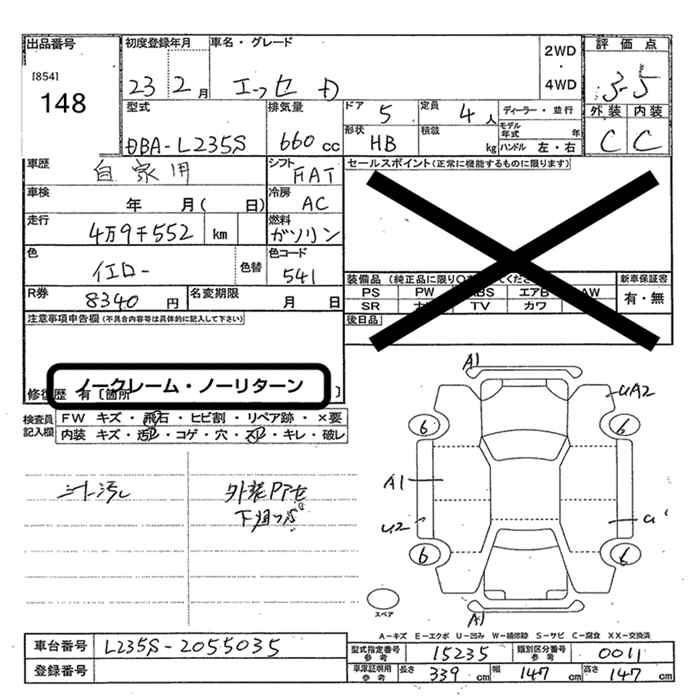 出品番号 初度登録年月 車名・グレード 2WD・4WD 評価点
[854] 148 23 2月 エッセ D 3.5
型式 排気量 ドア 5 定員 4人 ディーラー・並行 外装 内装
DBA-L235S 660cc 形状 HB 積載 kg モデル年式 年 ハンドル 左・右 C C
車歴 自家用 シフト FAT セールスポイント(正常に機能するものに限ります)
車検 年 月( 日) 冷房 AC
走行 4万9千552 km 燃料 ガソリン
色 イエロー 色替 色コード 541 装備品(純正品に限り○を てくださ 新車保証書
R券 8340円 名変期限 月 日 PS PW ABS エアB AW 有・無
SR ナ TV カワ
注意事項申告欄(不具合内容等は具体的に記入して下さい) 後日品
ノークレーム・ノーリターン
修復歴 有[箇所 ]
検査員記入欄 FW キズ・飛石・ヒビ割・リペア跡・×要
内装 キズ・汚レ・コゲ・穴・スレ・キレ・破レ
シート汚レ 外装
A1
UA2
6 6
A1
U2 U
6 6
A1
スペア
A-キズ E-エクボ U-凹み W-補修跡 S-サビ C-腐食 XX-交換済
車台番号 L235S-2055035 型式指定番号参考 15235 類別区分番号参考 0011
登録番号 車庫証明用参考 長さ 339cm 幅 147cm 高さ 147cm